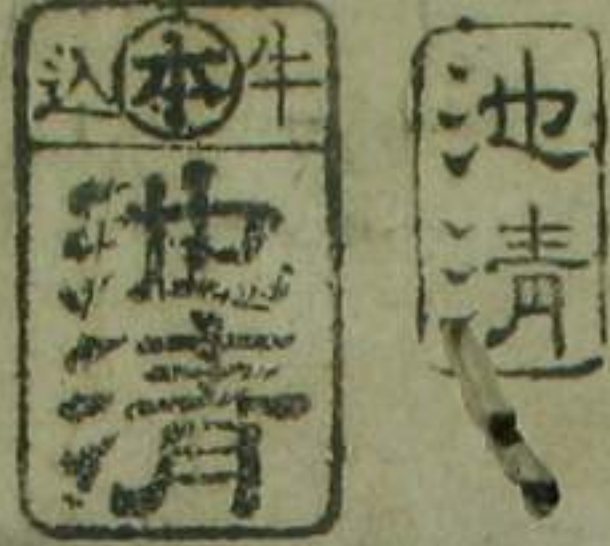 池清
牛本込
池清